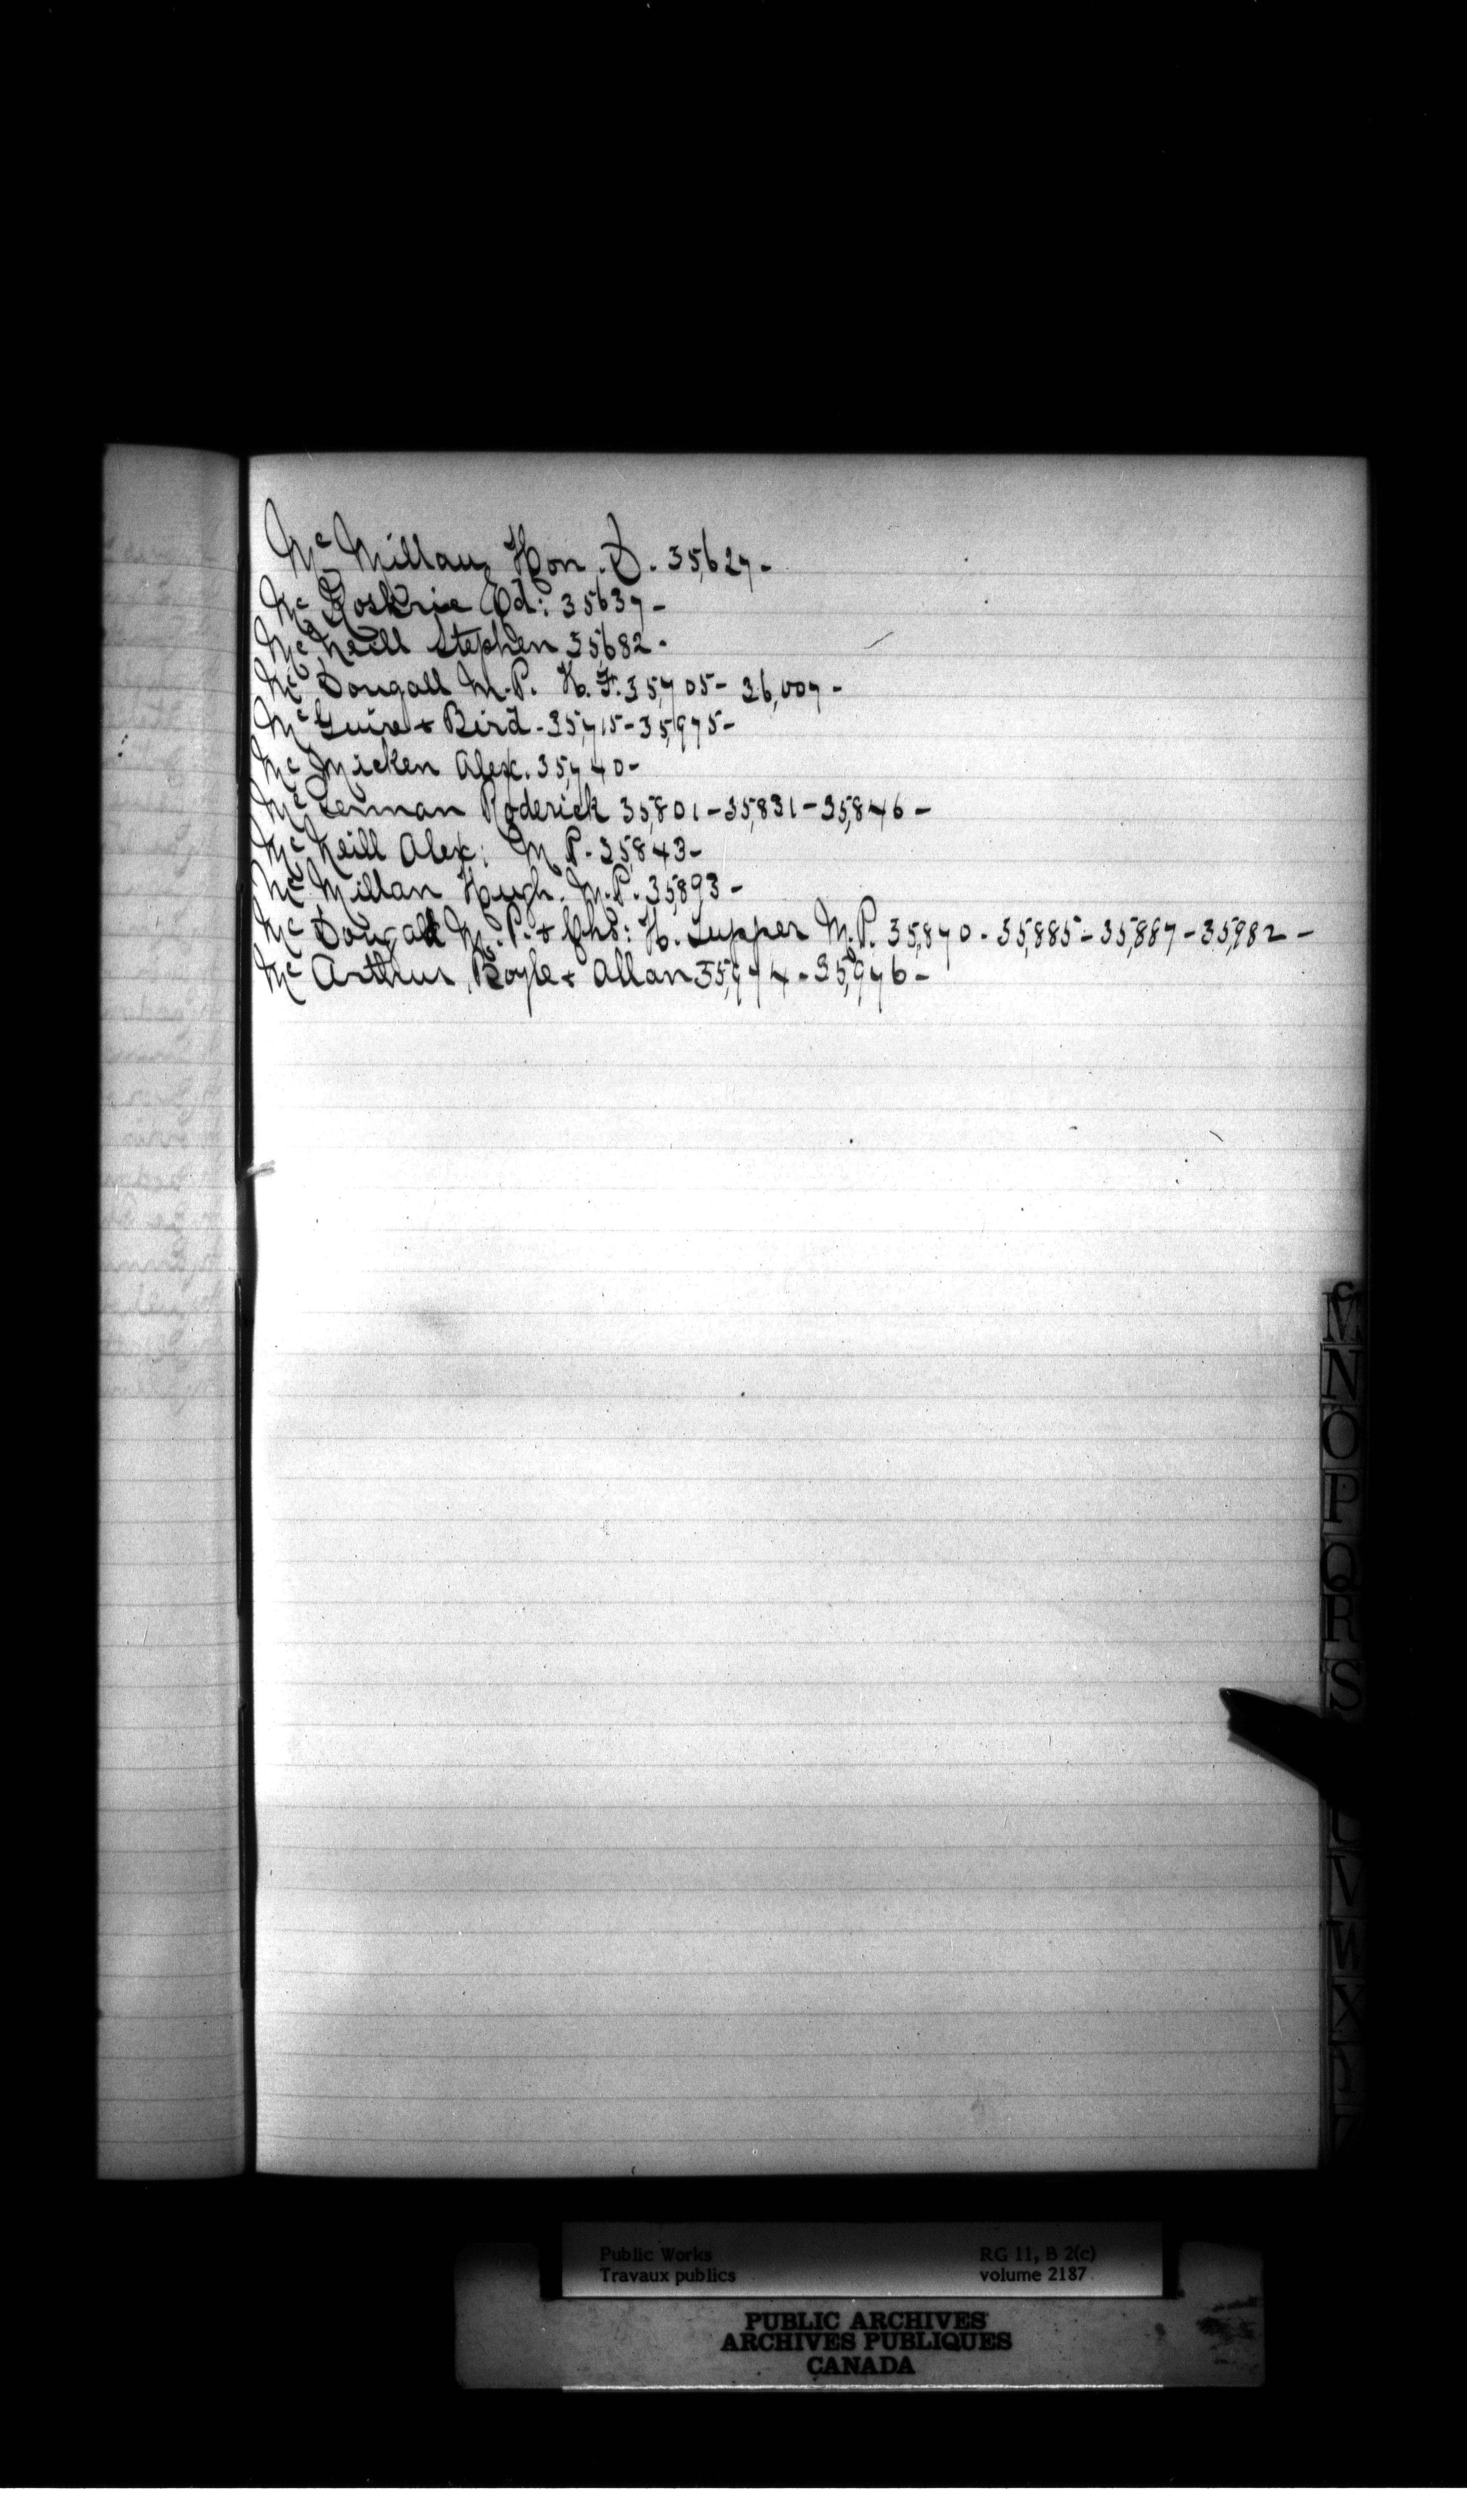 Mc Millan Hon. D. 35,627-
Mc Roskrie Ed: 35637-
Mc Neill Stephen 35,682-
Mc Dougall M.P. H.F. 35,705- 36,007-
Mc Guire & Bird-35,715-35,975-
Mc Micken Alex. 35,740-
Mc Lennan Roderick 35,801-35,831-35,846-
Mc Neill Alex: M.P. 35,843-
Mc Millan Hugh. M.P. 35,893-
Mc Dougall M.P. & Chs: H. Tupper M.P. 35,870-35,885-35,887-35,982-
Mc Arthur, Boyle & Allan 35,944-35,946-
Mc
N
O
P
Q
R
S
U
V
W
X
Public Works
Travaux publics
RG 11, B 2(c)
volume 2187
PUBLIC ARCHIVES
ARCHIVES PUBLIQUES
CANADA